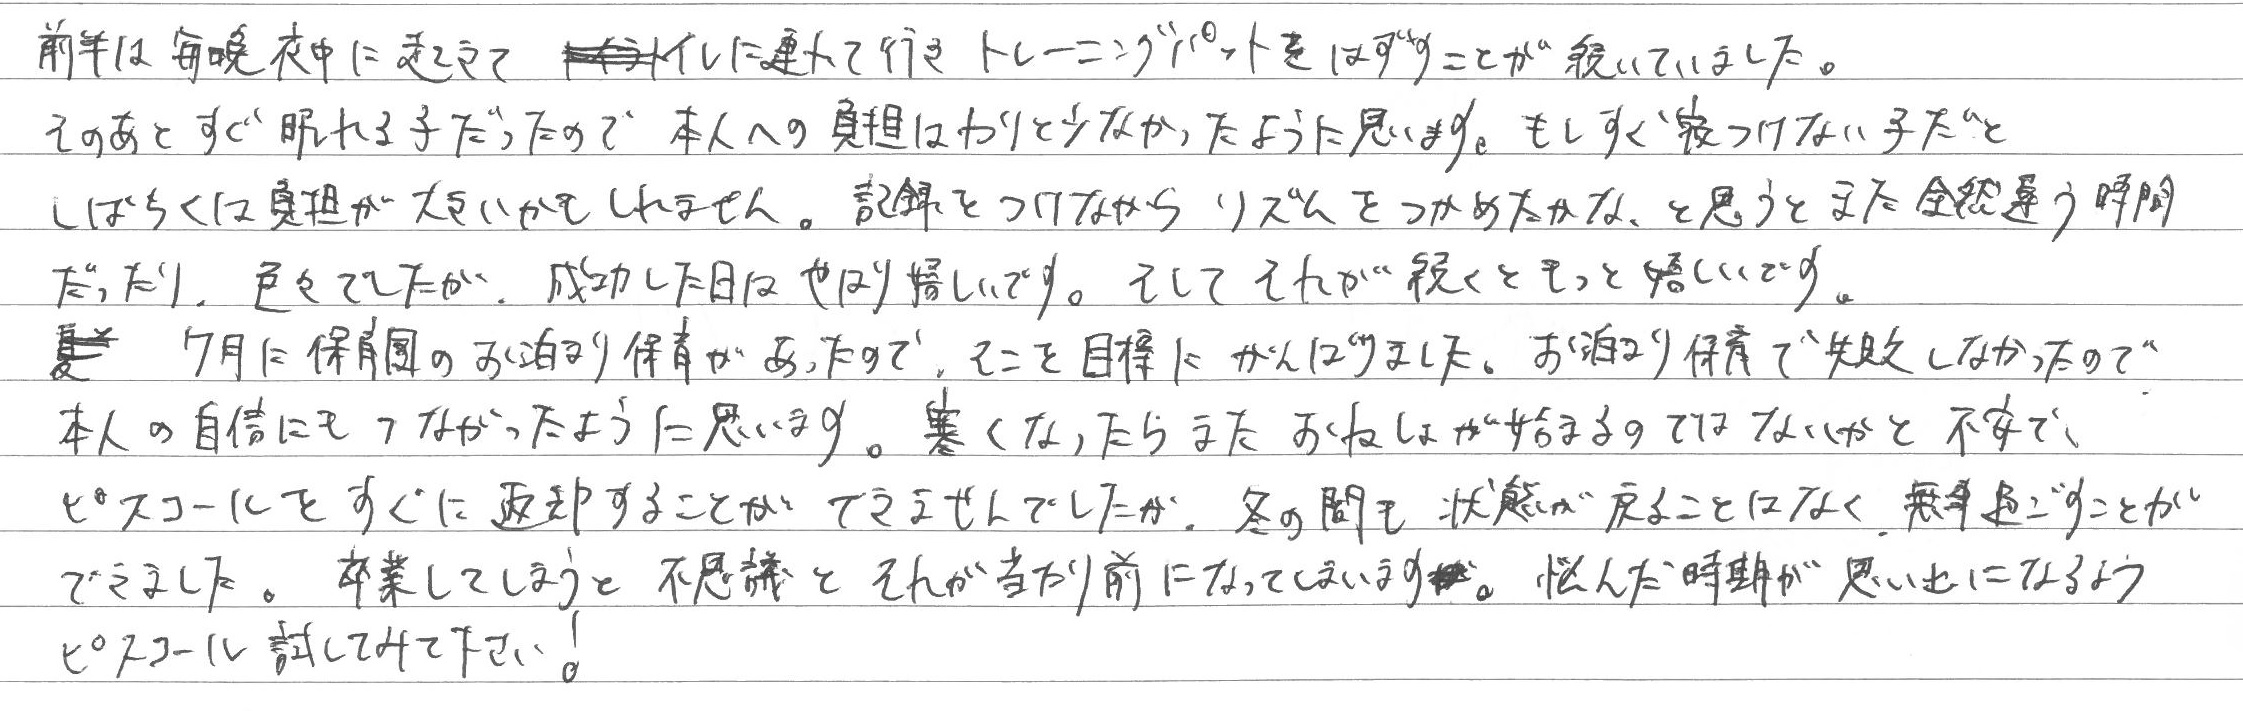 前半は毎晩夜中に起きて トイレに連れて行き トレーニングパットをはずすことが続いていました。
そのあとすぐ眠れる子だったので 本人への負担はわりと少なかったように思います。もしすぐ寝つけない子だと
しばらくは負担が大きいかもしれません。記録をつけながら リズムをつかめたかな、と思うとまた全然違う時間
だったり、色々でしたが、成功した日はやはり嬉しいです。そしてそれが続くともっと嬉しいです。
7月に保育園のお泊り保育があったので、そこを目標にがんばりました。お泊り保育で失敗しなかったので
本人の自信にもつながったように思います。寒くなったらまたおねしょが始まるのではないかと不安で、
ピスコールをすぐに返却することができませんでしたが、冬の間も状態が戻ることはなく、無事過ごすことが
できました。卒業してしまうと不思議とそれが当たり前になってしまいます。悩んだ時期が思い出になるよう
ピスコール試してみて下さい!